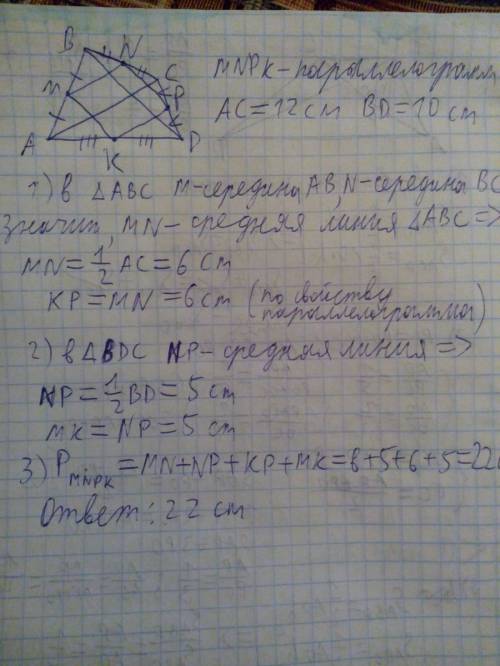 B N
C
M
P
A
K
D
MNPK - параллелограмм
AC = 12 см BD = 10 см
1) в △ABC M-середина AB, N-середина BC
Значит, MN - средняя линия △ABC =>
MN = 1/2 AC = 6 см
KP = MN = 6 см (по свойству параллелограмма)
2) в △BDC NP - средняя линия =>
NP = 1/2 BD = 5 см
MK = NP = 5 см
3) P MNPK = MN + NP + KP + MK = 6 + 5 + 6 + 5 = 22
Ответ: 22 см